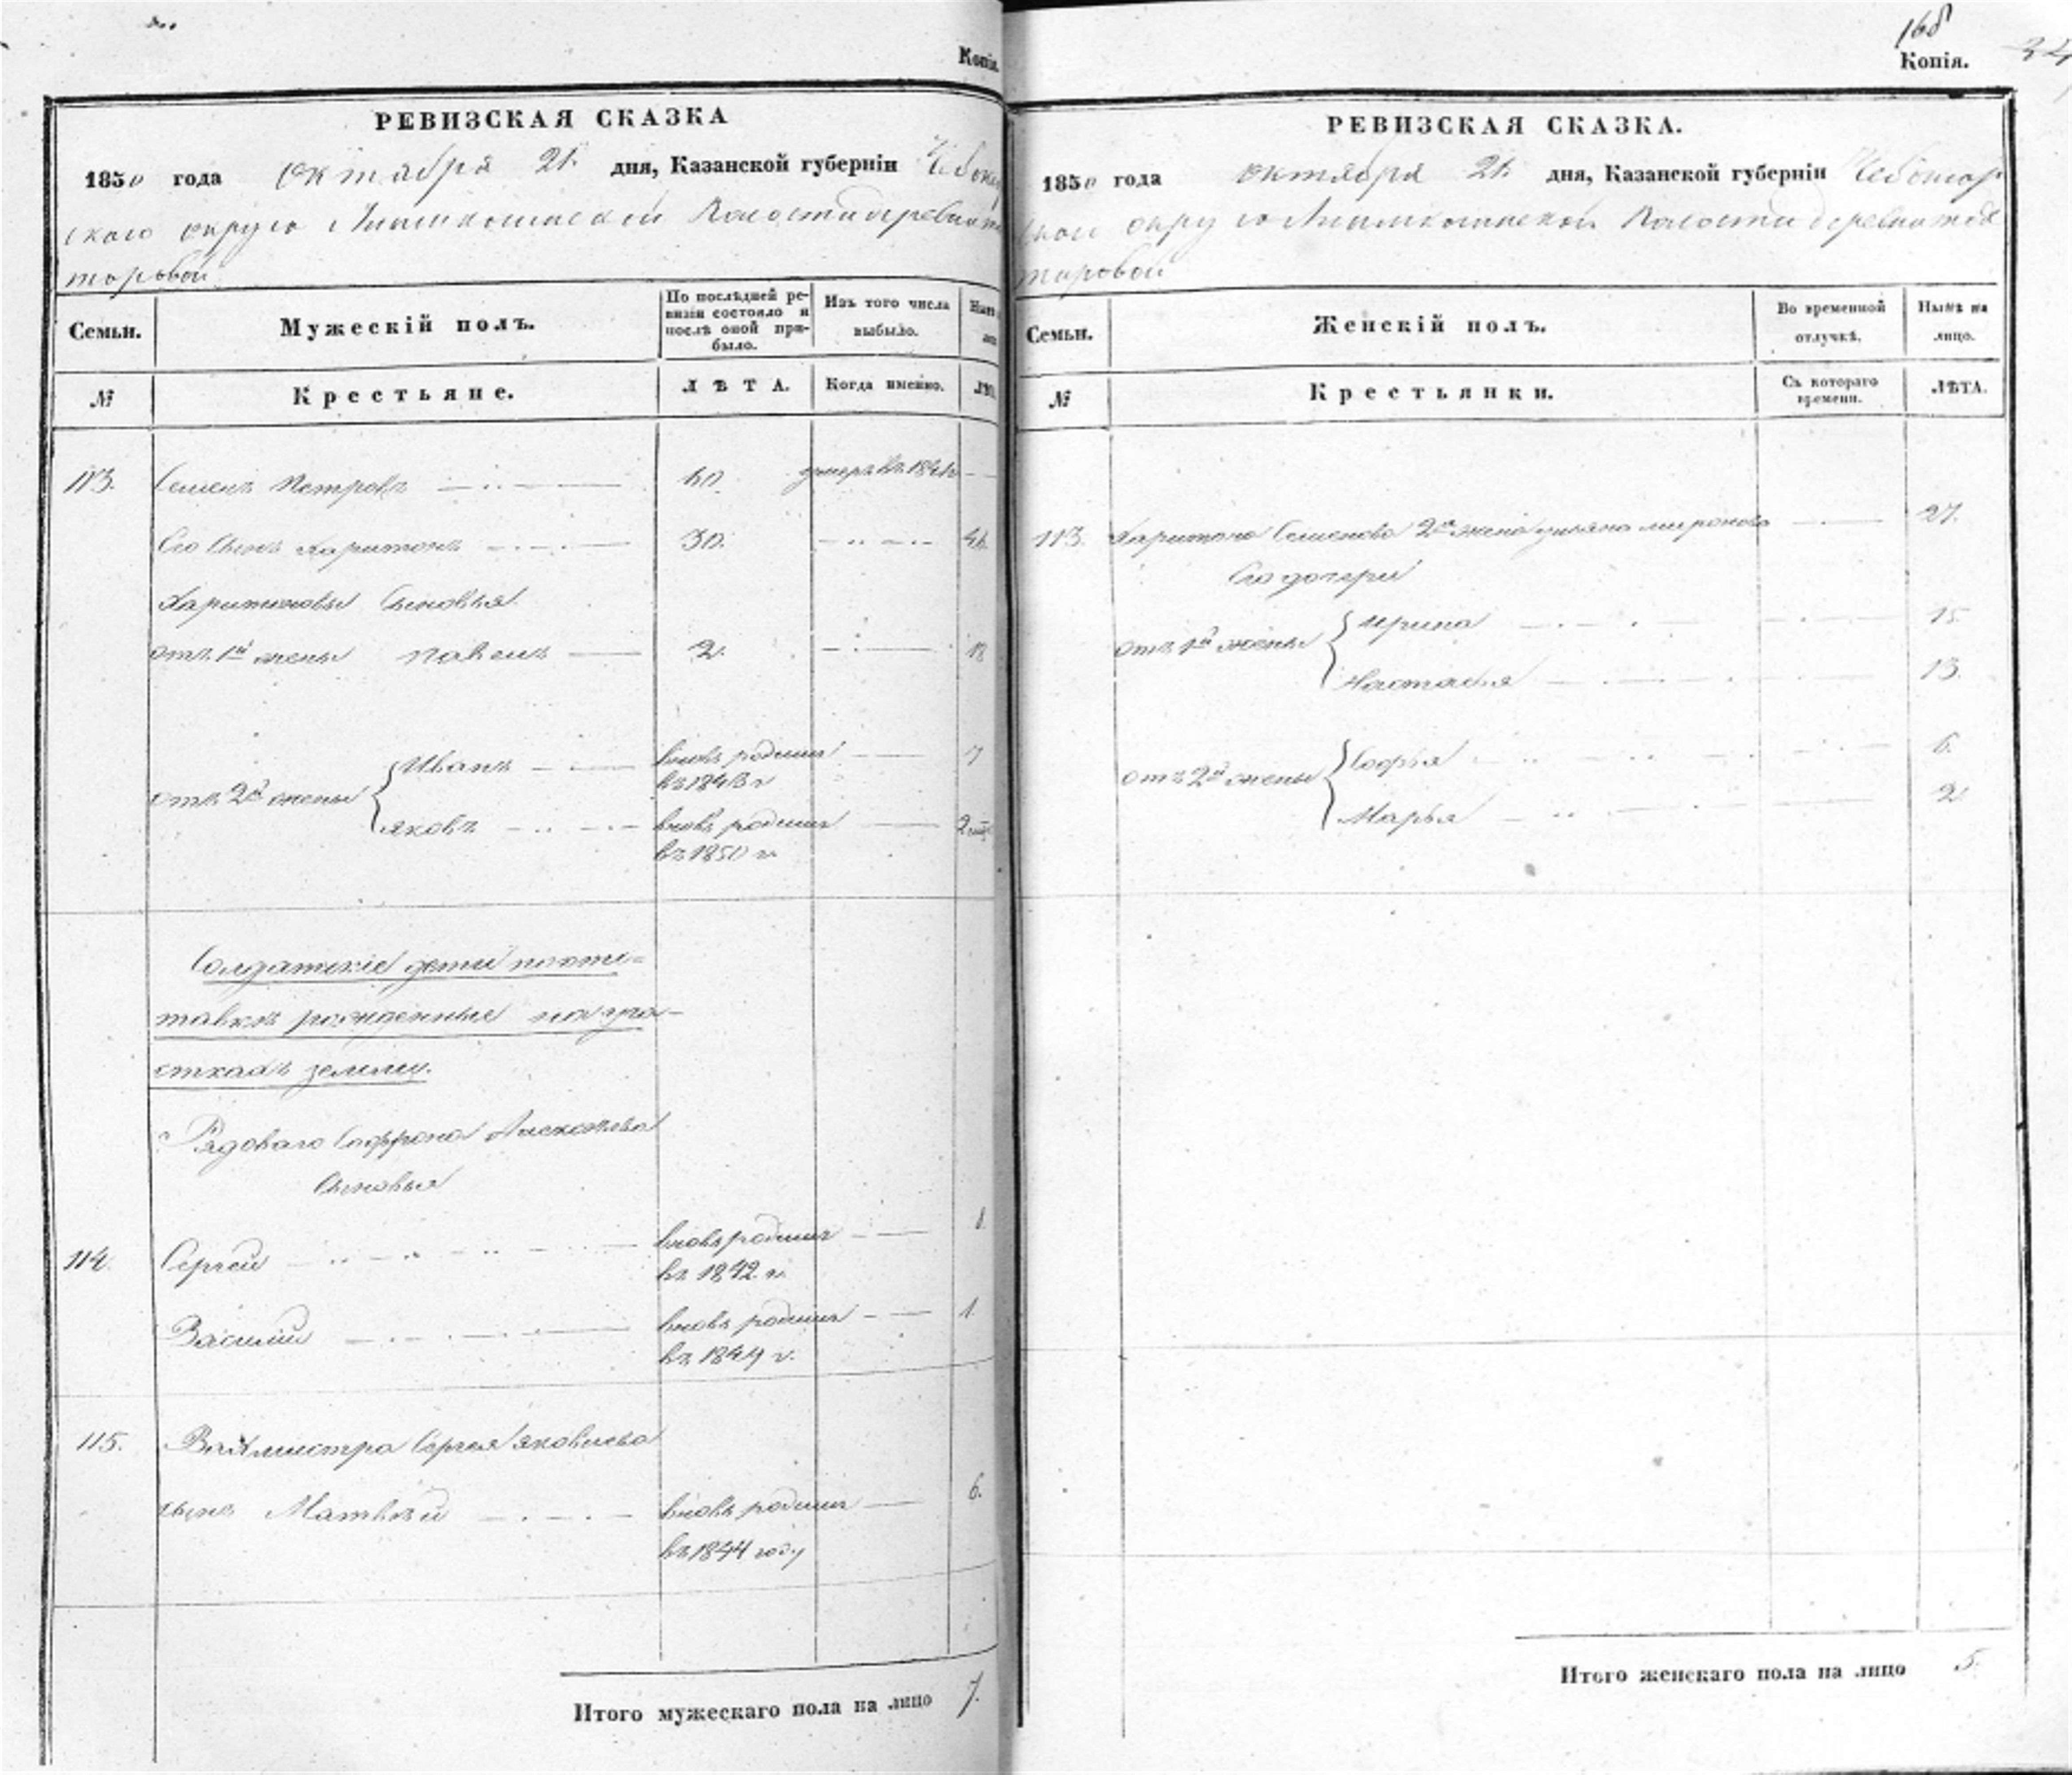 Копія.
РЕВИЗСКАЯ СКАЗКА
1850 года октября 21 дня, Казанской губерніи Чебокса
скаго округа волости деревни
торовой
Семьи.
Мужескій полъ.
По послѣдней ре-
визіи состояло и
послѣ оной при-
было.
Изъ того числа
выбыло.
№
Крестьяне.
ЛѢТА.
Когда именно.
113. Семенъ Петровъ 60. умеръ въ
Его сынъ Харитонъ 30. 46
Харитоновы сыновья
отъ 1й жены Павелъ 2. 18
отъ 2й жены
Иванъ вновь родился 7
въ 1843 г
Яковъ вновь родился
въ 1850 г.
Солдатскіе дети
рожденные на уча-
сткахъ земли.
Рядоваго Софрона
Сыновья
114. Сергей вновь родился
въ 1842 г.
Василий вновь родился 1.
въ 1849 г.
115. Вахмистра Сергея Яковлева
сынъ Матвѣй вновь родился 6.
въ 1844 году
Итого мужескаго пола на лицо 7.
168
Копія.
РЕВИЗСКАЯ СКАЗКА.
1850 года октября 21 дня, Казанской губерніи Чебоксар
скаго округа волости деревни
таровой
Семьи.
Женскій полъ.
Во временной
отлучкѣ.
Нынѣ на
лицо.
№
Крестьянки.
Съ котораго
времени.
ЛѢТА.
113. Харитона Семенова 2я жена Ульяна Миронова 27.
Его дочери
отъ 1й жены
Ирина 15
Настасья 13.
отъ 2й жены
Софья 6.
Марья 2
Итого женскаго пола на лицо 5.